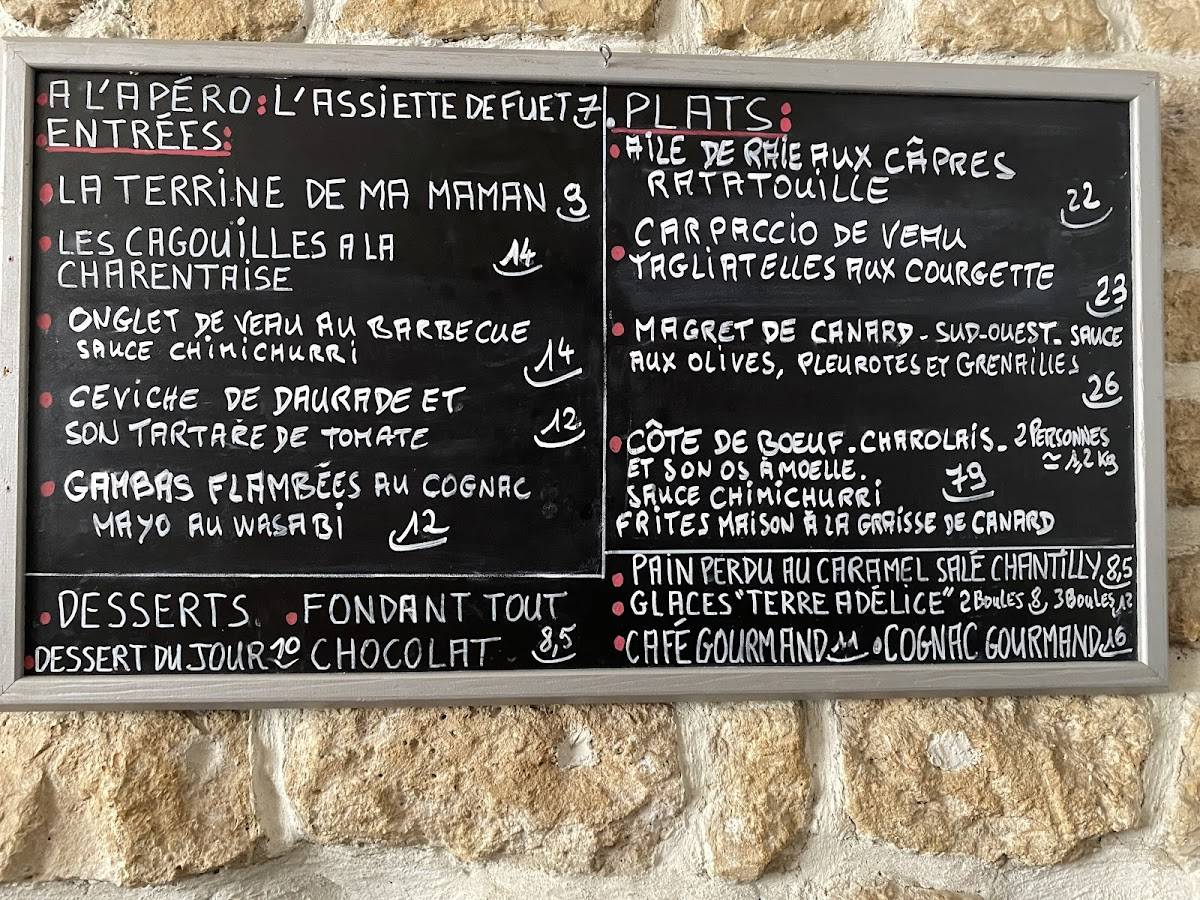 A L'APÉRO: L'ASSIETTE DE FUET 7
ENTRÉES:
LA TERRINE DE MA MAMAN 9
LES CAGOUILLES A LA 14
CHARENTAISE
ONGLET DE VEAU AU BARBECUE
SAUCE CHIMICHURRI 14
CEVICHE DE DAURADE ET
SON TARTARE DE TOMATE 12
GAMBAS FLAMBÉES AU COGNAC
MAYO AU WASABI 12
PLATS:
AILE DE RAIE AUX CÂPRES
RATATOUILLE 22
CARPACCIO DE VEAU
TAGLIATELLES AUX COURGETTE
23
MAGRET DE CANARD - SUD-OUEST. SAUCE
AUX OLIVES, PLEUROTES ET GRENAILLES
26
CÔTE DE BOEUF. CHAROLAIS. 2 PERSONNES
ET SON OS À MOELLE. ≃ 1,2 kg
SAUCE CHIMICHURRI 79
FRITES MAISON À LA GRAISSE DE CANARD
DESSERTS. FONDANT TOUT
DESSERT DU JOUR 10 CHOCOLAT 8,5
PAIN PERDU AU CARAMEL SALÉ CHANTILLY 8,5
GLACES "TERRE ADÉLICE" 2 BOULES 8, 3 BOULES 12
CAFÉ GOURMAND 11 COGNAC GOURMAND 16